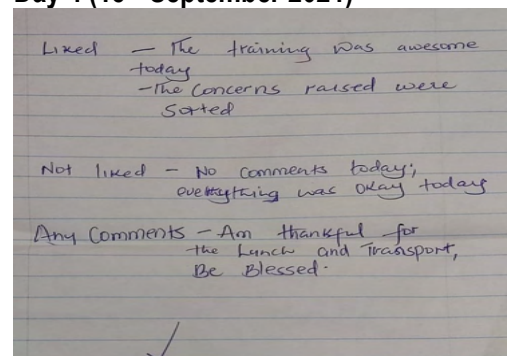 Liked — The training was awesome
today
- The concerns raised were
Sorted
Not liked - No comments today;
everything was okay today
Any Comments - Am thankful for
the Lunch and Transport,
Be Blessed.